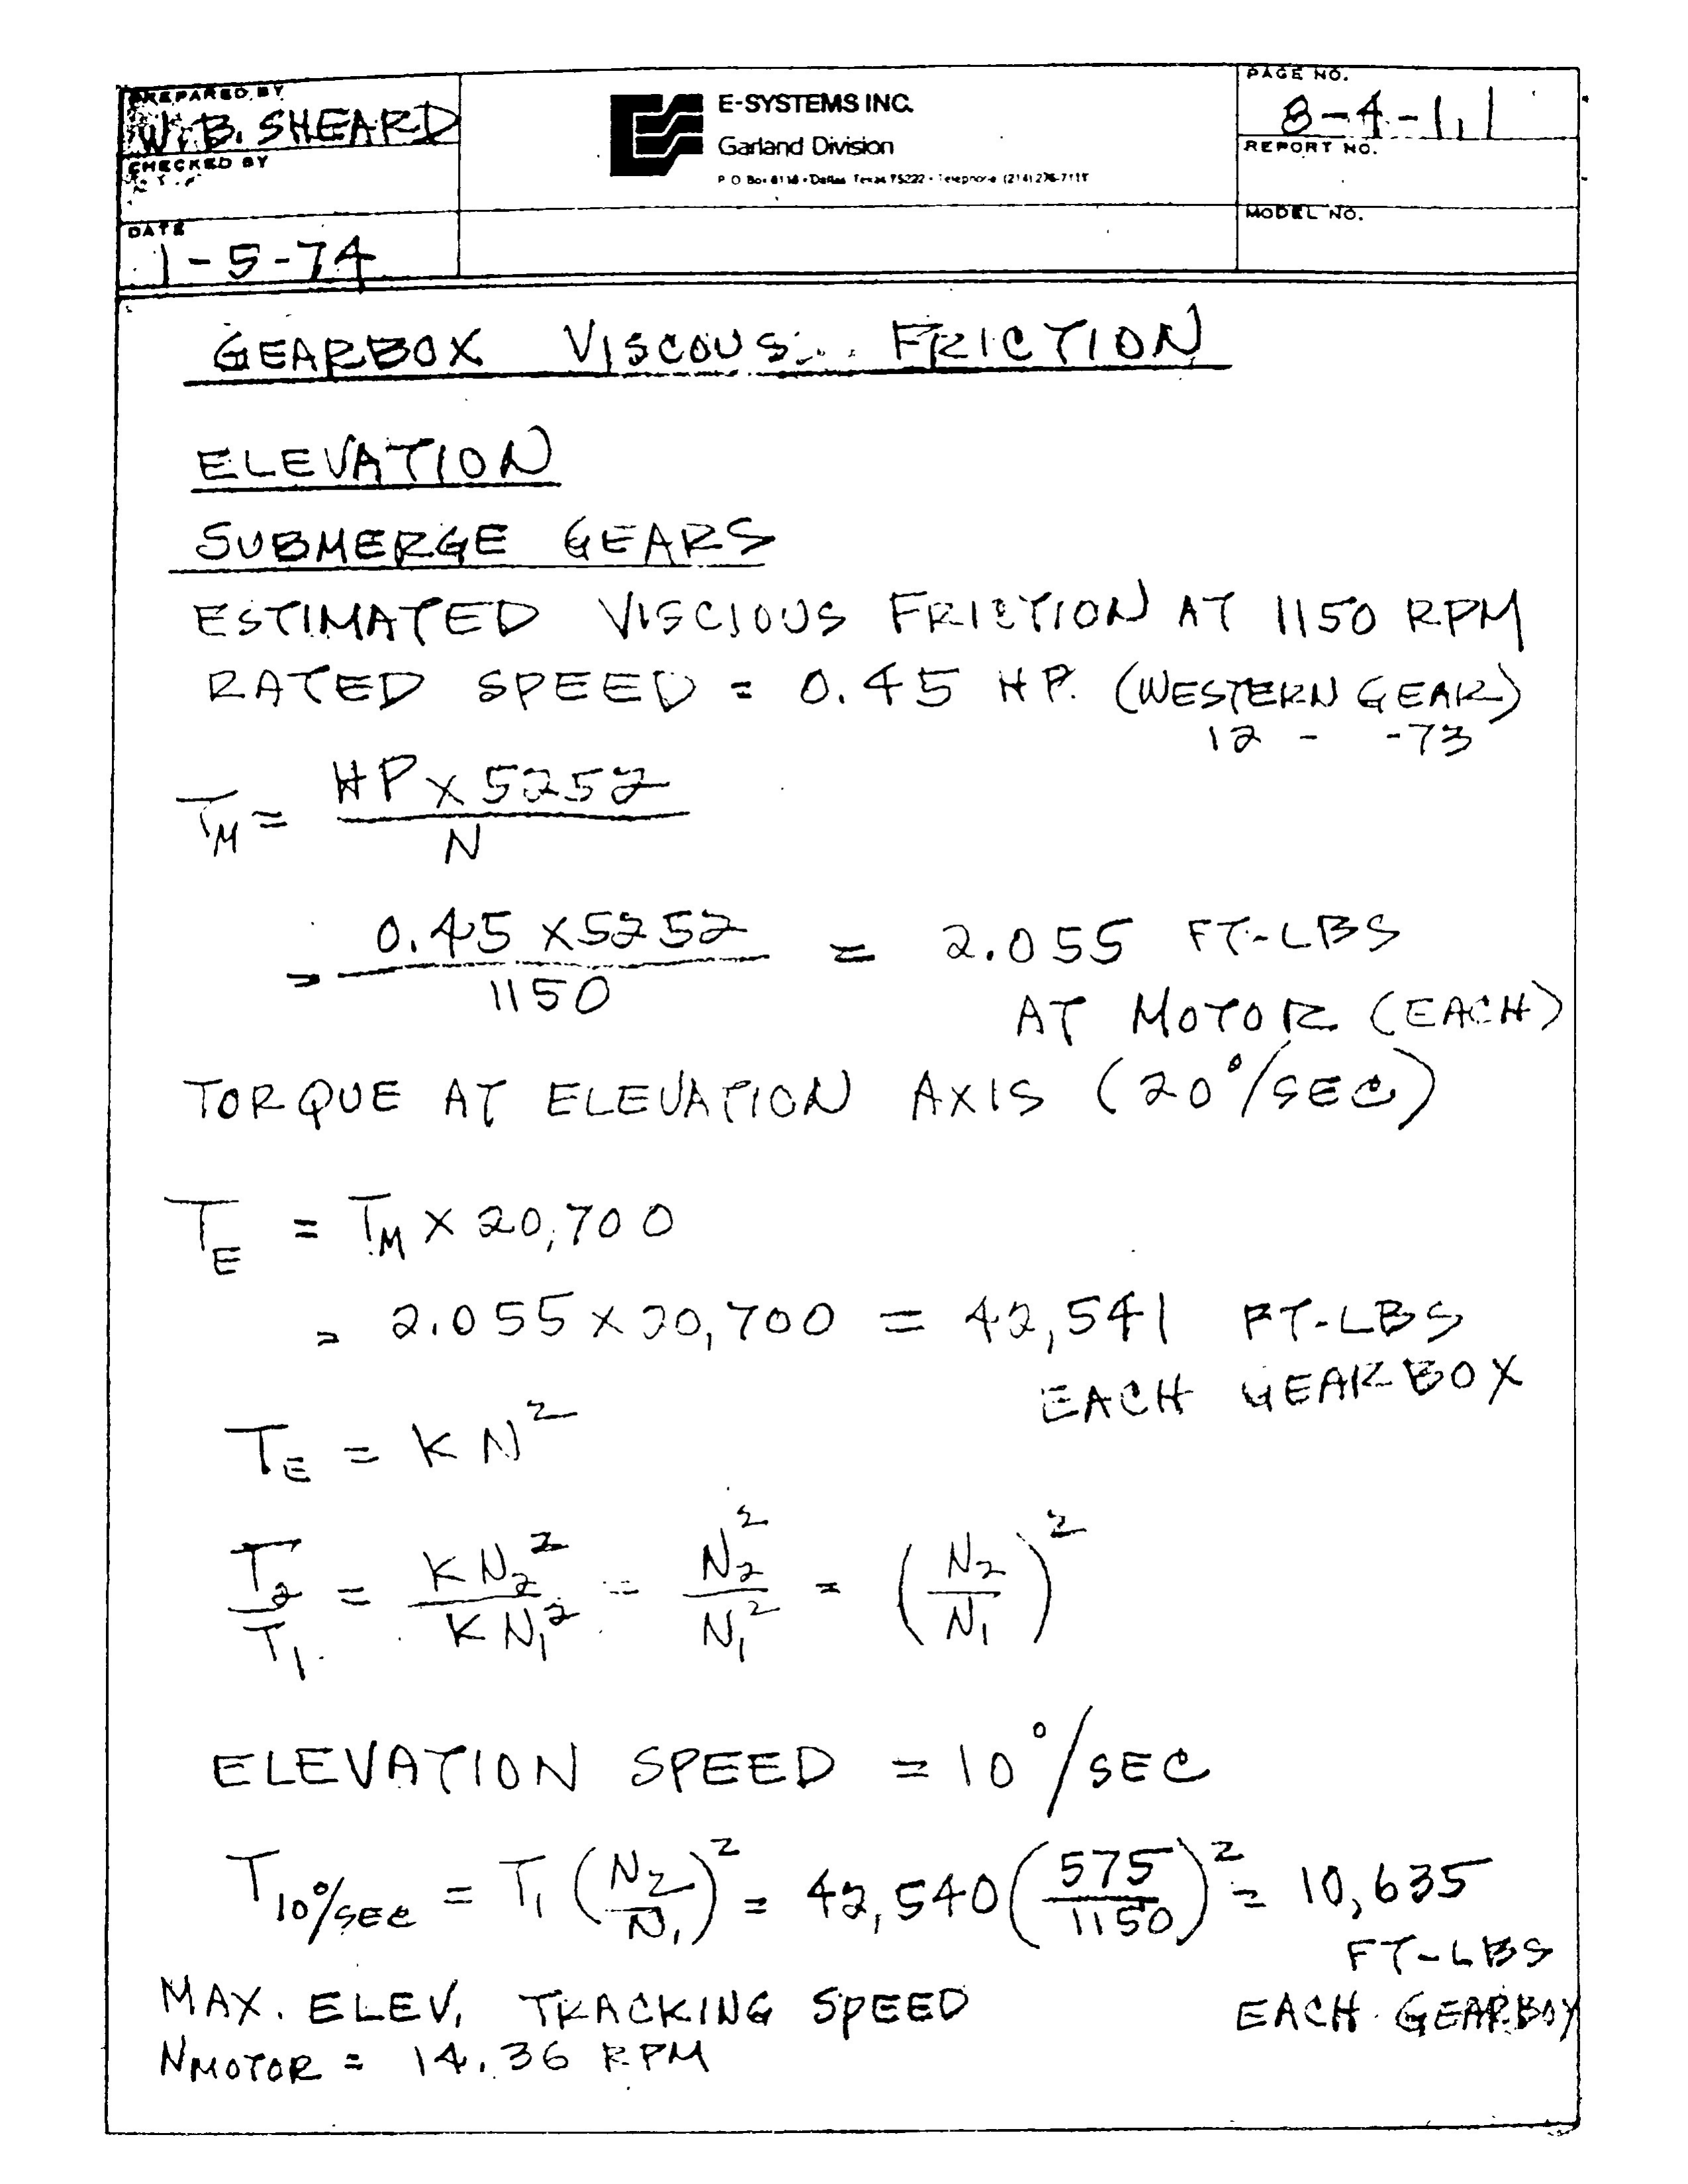 PREPARED BY
W.B. SHEARD
CHECKED BY
DATE
1-5-74
E-SYSTEMS INC.
Garland Division
P O Box 6118 • Dallas Texas 75222 • Telephone (214) 276-7111
PAGE NO.
8-4-1.1
REPORT NO.
MODEL NO.
GEARBOX VISCOUS FRICTION
ELEVATION
SUBMERGE GEARS
ESTIMATED VISCIOUS FRICTION AT 1150 RPM
RATED SPEED = 0.45 HP. (WESTERN GEAR)
12 - -73
T_M = HP x 5252 / N
= 0.45 x 5252 / 1150 = 2.055 FT-LBS
AT MOTOR (EACH)
TORQUE AT ELEVATION AXIS (20°/SEC)
T_E = T_M x 20,700
= 2.055 x 20,700 = 42,541 FT-LBS
EACH GEARBOX
T_E = K N²
T_2 / T_1 = K N_2² / K N_1² = N_2² / N_1² = (N_2 / N_1)²
ELEVATION SPEED = 10°/SEC
T_10°/SEC = T_1 (N_2 / N_1)² = 42,540 (575 / 1150)² = 10,635
FT-LBS
EACH GEARBOX
MAX. ELEV. TRACKING SPEED
N_MOTOR = 14.36 RPM